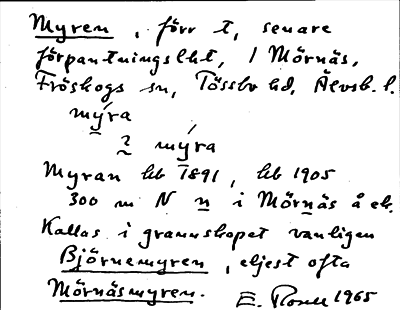 Myren, förr t, senare
förpantningslht, 1 Mörnäs,
Fröskogs sn, Tössbo hd, Älvsb. l.
mýra
2 mýra
Myran hb 1891, hb 1905
300 m N n i Mörnäs å ek.
Kallas i grannskapet vanligen
Björnemyren, eljest ofta
Mörnäsmyren.
E. 1965